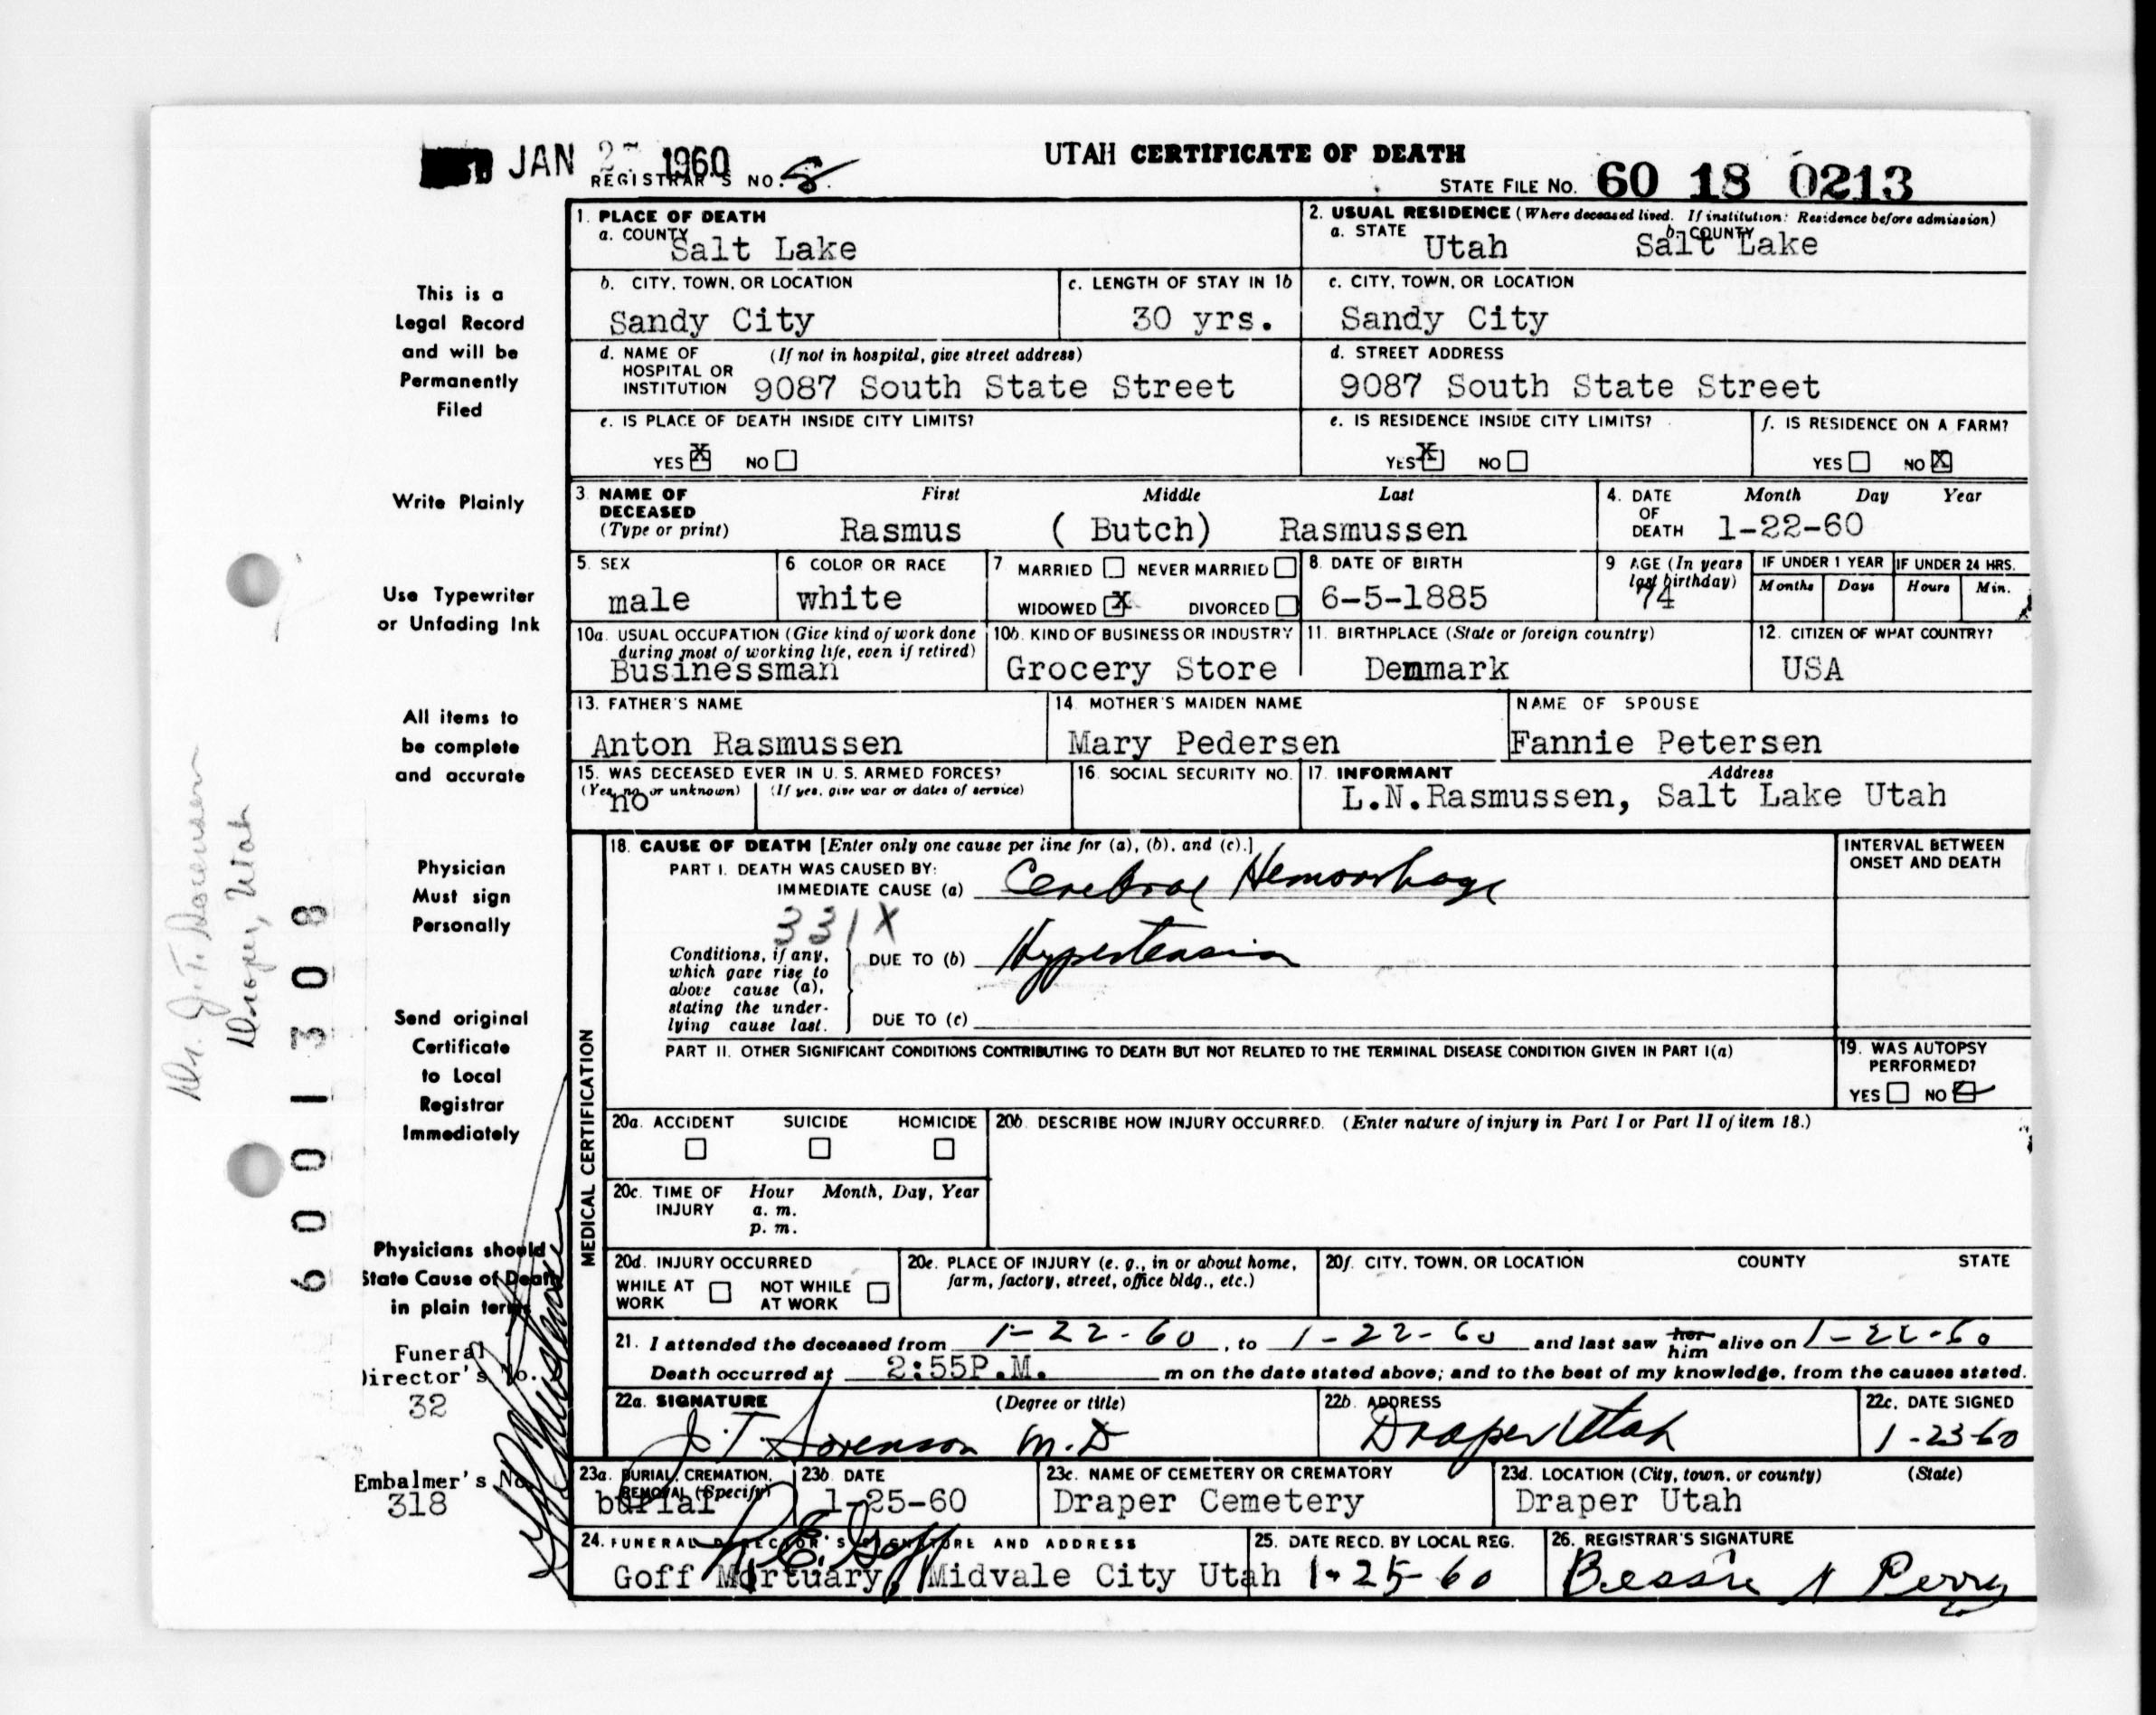 JAN 1960
REGISTRAR'S NO. 8
UTAH CERTIFICATE OF DEATH
STATE FILE No. 60 18 0213
1. PLACE OF DEATH
a. COUNTY
Salt Lake
2. USUAL RESIDENCE (Where deceased lived. If institution: Residence before admission)
a. STATE Utah b. COUNTY Salt Lake
b. CITY, TOWN, OR LOCATION
Sandy City
c. LENGTH OF STAY IN 1b
30 yrs.
c. CITY, TOWN, OR LOCATION
Sandy City
d. NAME OF HOSPITAL OR INSTITUTION (If not in hospital, give street address)
9087 South State Street
d. STREET ADDRESS
9087 South State Street
e. IS PLACE OF DEATH INSIDE CITY LIMITS?
YES X NO
e. IS RESIDENCE INSIDE CITY LIMITS?
YES X NO
f. IS RESIDENCE ON A FARM?
YES NO X
3. NAME OF DECEASED (Type or print)
First Middle Last
Rasmus ( Butch) Rasmussen
4. DATE OF DEATH
Month Day Year
1-22-60
5. SEX
male
6 COLOR OR RACE
white
7 MARRIED NEVER MARRIED
WIDOWED X DIVORCED
8. DATE OF BIRTH
6-5-1885
9 AGE (In years last birthday)
74
IF UNDER 1 YEAR
Months Days
IF UNDER 24 HRS.
Hours Min.
10a. USUAL OCCUPATION (Give kind of work done during most of working life, even if retired)
Businessman
10b. KIND OF BUSINESS OR INDUSTRY
Grocery Store
11. BIRTHPLACE (State or foreign country)
Denmark
12. CITIZEN OF WHAT COUNTRY?
USA
13. FATHER'S NAME
Anton Rasmussen
14. MOTHER'S MAIDEN NAME
Mary Pedersen
NAME OF SPOUSE
Fannie Petersen
15. WAS DECEASED EVER IN U.S. ARMED FORCES?
(Yes, no, or unknown) (If yes, give war or dates of service)
no
16. SOCIAL SECURITY NO.
17. INFORMANT Address
L.N.Rasmussen, Salt Lake Utah
MEDICAL CERTIFICATION
18. CAUSE OF DEATH [Enter only one cause per line for (a), (b), and (c).]
PART I. DEATH WAS CAUSED BY:
IMMEDIATE CAUSE (a) Cerebral Hemorrhage
331X
Conditions, if any, which gave rise to above cause (a), stating the underlying cause last.
DUE TO (b) Hypertension
DUE TO (c)
INTERVAL BETWEEN ONSET AND DEATH
PART II. OTHER SIGNIFICANT CONDITIONS CONTRIBUTING TO DEATH BUT NOT RELATED TO THE TERMINAL DISEASE CONDITION GIVEN IN PART I(a)
19. WAS AUTOPSY PERFORMED?
YES NO
20a. ACCIDENT SUICIDE HOMICIDE
20b. DESCRIBE HOW INJURY OCCURRED. (Enter nature of injury in Part I or Part II of item 18.)
20c. TIME OF INJURY Hour Month, Day, Year
a. m.
p. m.
20d. INJURY OCCURRED
WHILE AT WORK NOT WHILE AT WORK
20e. PLACE OF INJURY (e. g., in or about home, farm, factory, street, office bldg., etc.)
20f. CITY, TOWN, OR LOCATION COUNTY STATE
21. I attended the deceased from 1-22-60, to 1-22-60 and last saw her him alive on 1-22-60
Death occurred at 2:55P.M. m on the date stated above; and to the best of my knowledge, from the causes stated.
22a. SIGNATURE (Degree or title)
J.T. Sorenson M.D
22b. ADDRESS
Draper Utah
22c. DATE SIGNED
1-23-60
23a. BURIAL, CREMATION, REMOVAL (Specify)
burial
23b. DATE
1-25-60
23c. NAME OF CEMETERY OR CREMATORY
Draper Cemetery
23d. LOCATION (City, town, or county) (State)
Draper Utah
24. FUNERAL DIRECTOR'S SIGNATURE AND ADDRESS
R.E. Goff
Goff Mortuary, Midvale City Utah
25. DATE RECD. BY LOCAL REG.
1-25-60
26. REGISTRAR'S SIGNATURE
Bessie N Perry
This is a
Legal Record
and will be
Permanently
Filed
Write Plainly
Use Typewriter
or Unfading Ink
All items to
be complete
and accurate
Physician
Must sign
Personally
Send original
Certificate
to Local
Registrar
Immediately
Physicians should
State Cause of Death
in plain terms
Funeral
Director's No.
32
Embalmer's No.
318
6001308
Dr. J.T. Sorensen
Draper, Utah